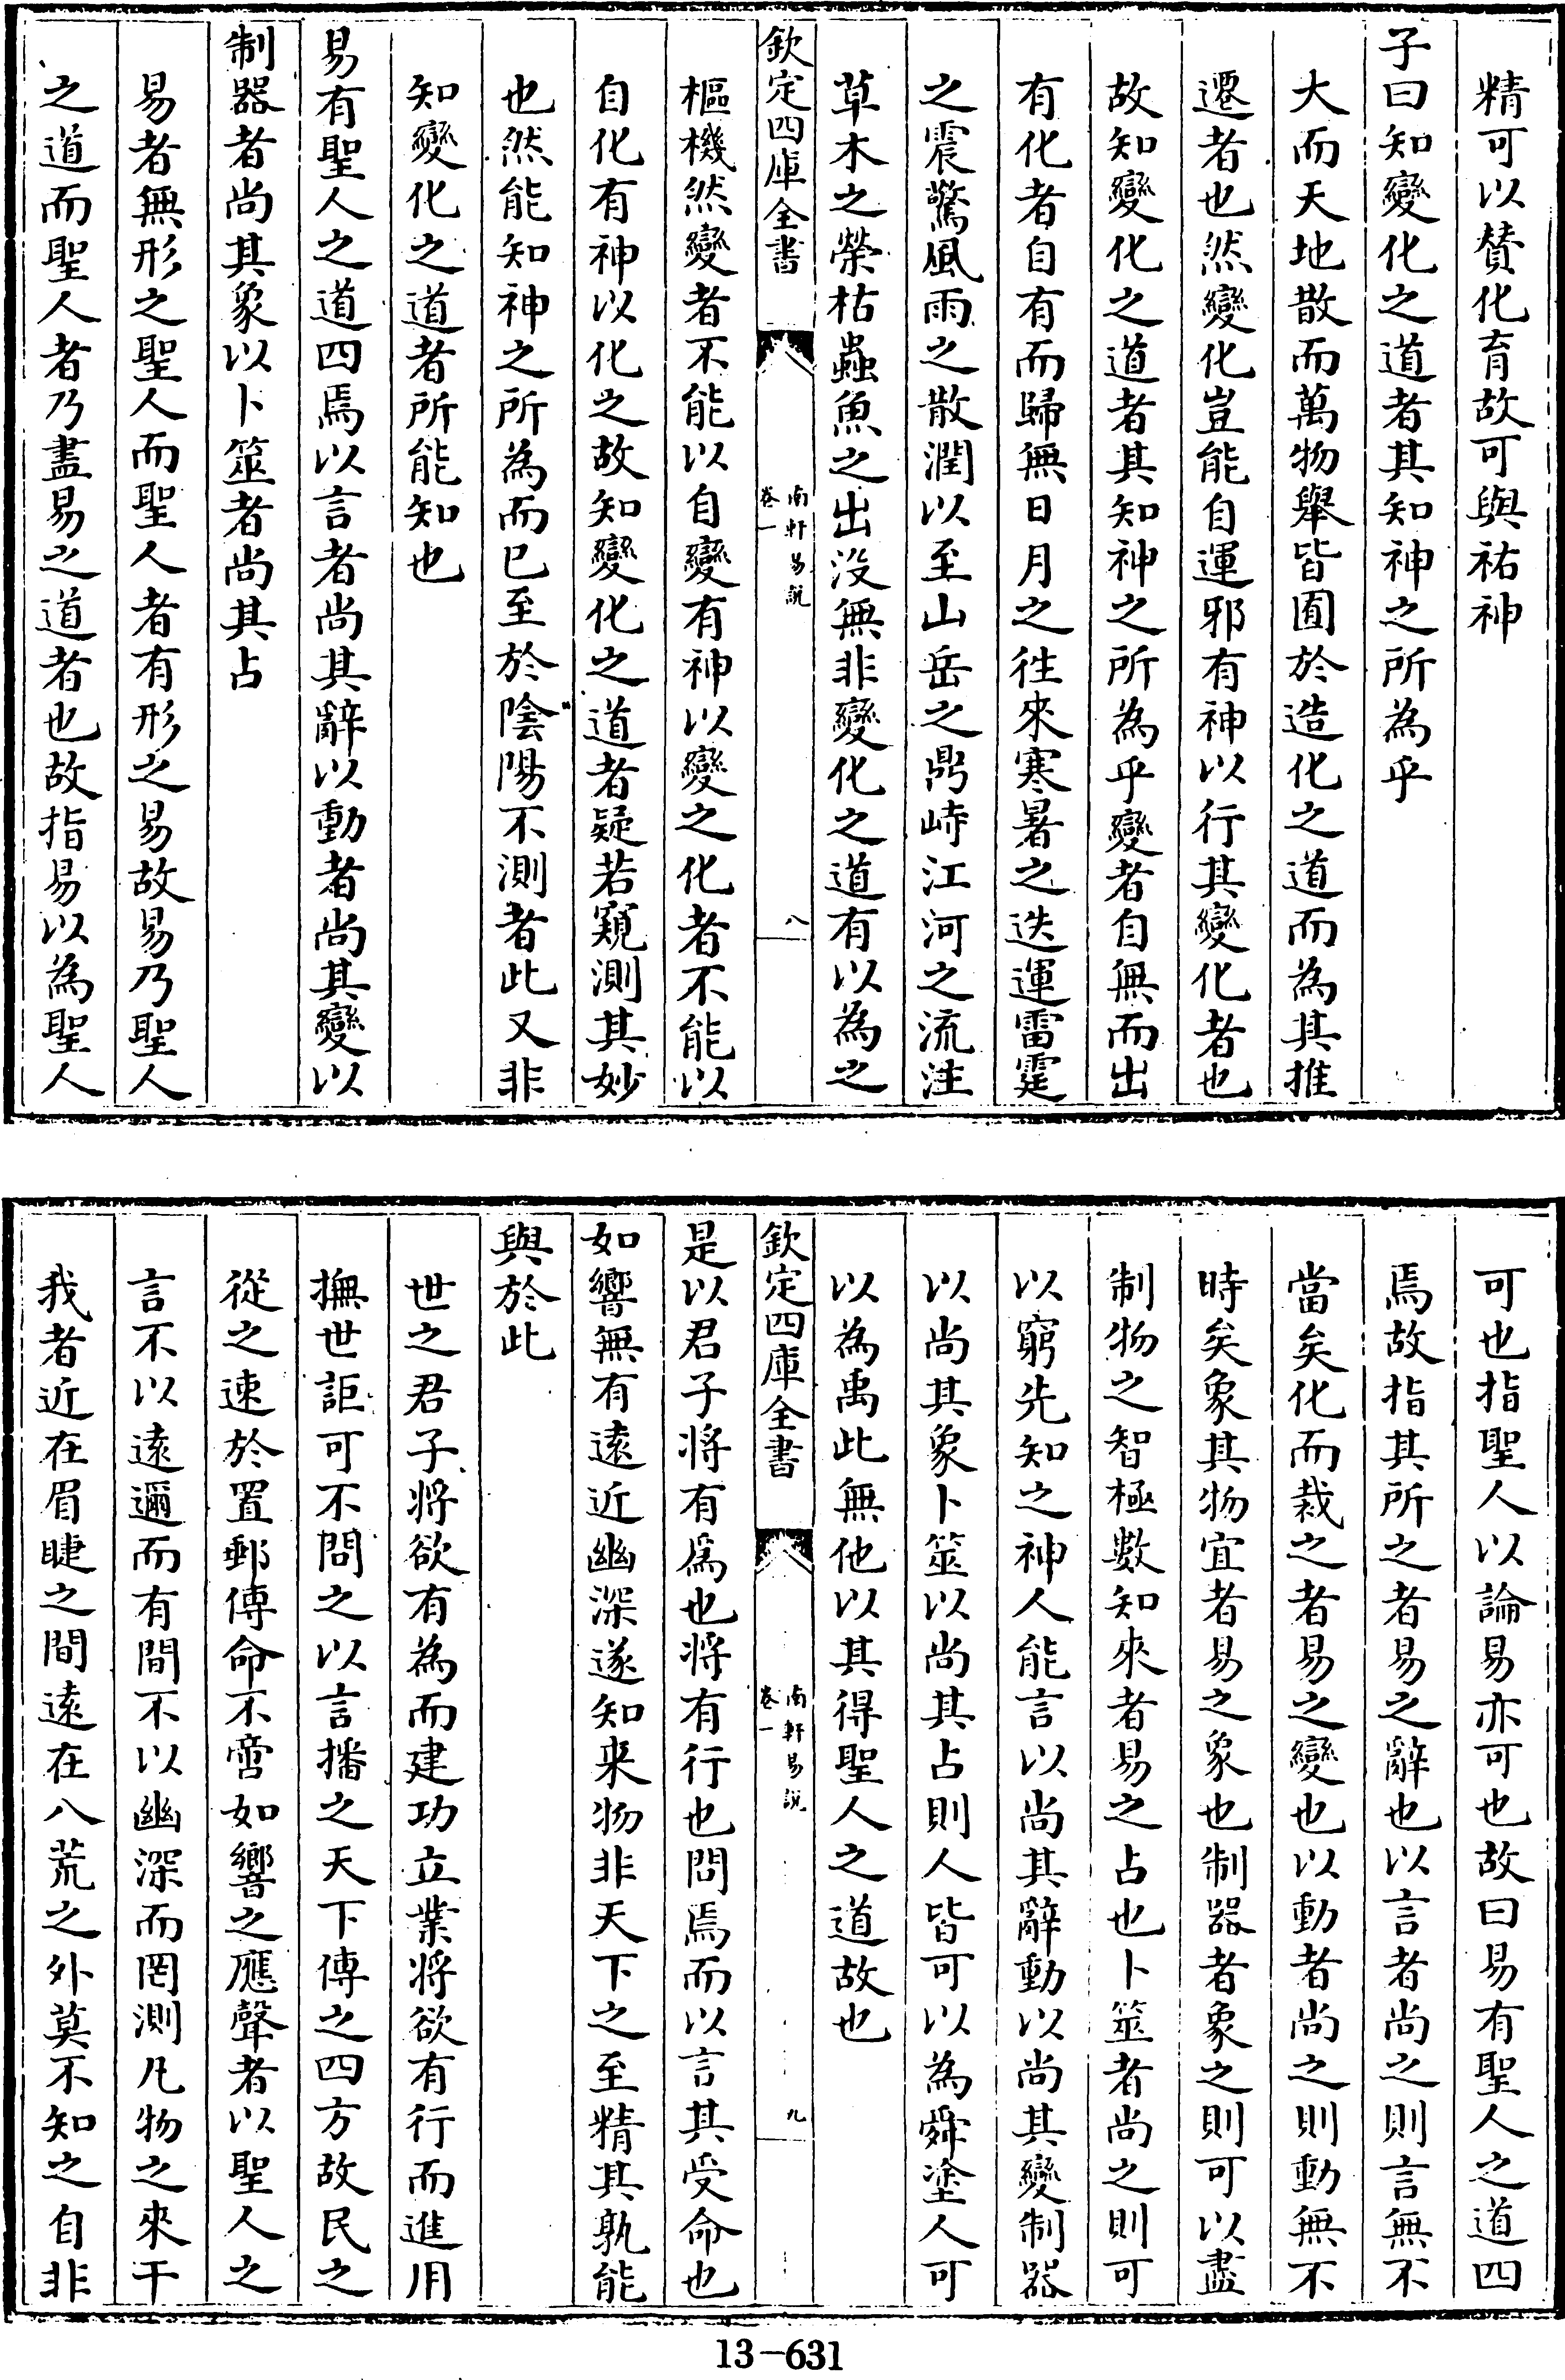 精可以贊化育故可與祐神
子曰知變化之道者其知神之所為乎
大而天地散而萬物舉皆囿於造化之道而為其推
遷者也然變化豈能自運邪有神以行其變化者也
故知變化之道者其知神之所為乎變者自無而出
有化者自有而歸無日月之徃來寒暑之迭運雷霆
之震驚風雨之散潤以至山岳之鼎峙江河之流注
草木之榮枯蟲魚之出沒無非變化之道有以為之
欽定四庫全書
南軒易說
卷一
八
樞機然變者不能以自變有神以變之化者不能以
自化有神以化之故知變化之道者疑若窺測其妙
也然能知神之所為而已至於陰陽不測者此又非
知變化之道者所能知也
易有聖人之道四焉以言者尚其辭以動者尚其變以
制器者尚其象以卜筮者尚其占
易者無形之聖人而聖人者有形之易故易乃聖人
之道而聖人者乃盡易之道者也故指易以為聖人
可也指聖人以論易亦可也故曰易有聖人之道四
焉故指其所之者易之辭也以言者尚之則言無不
當矣化而裁之者易之變也以動者尚之則動無不
時矣象其物宜者易之象也制器者象之則可以盡
制物之智極數知來者易之占也卜筮者尚之則可
以窮先知之神人能言以尚其辭動以尚其變制器
以尚其象卜筮以尚其占則人皆可以為舜塗人可
以為禹此無他以其得聖人之道故也
欽定四庫全書
南軒易說
卷一
九
是以君子將有爲也將有行也問焉而以言其受命也
如響無有遠近幽深遂知来物非天下之至精其孰能
與於此
世之君子將欲有為而建功立業將欲有行而進用
撫世詎可不問之以言播之天下傳之四方故民之
從之速於置郵傳命不啻如響之應聲者以聖人之
言不以遠邇而有間不以幽深而罔測凡物之來干
我者近在眉睫之間遠在八荒之外莫不知之自非
13-631